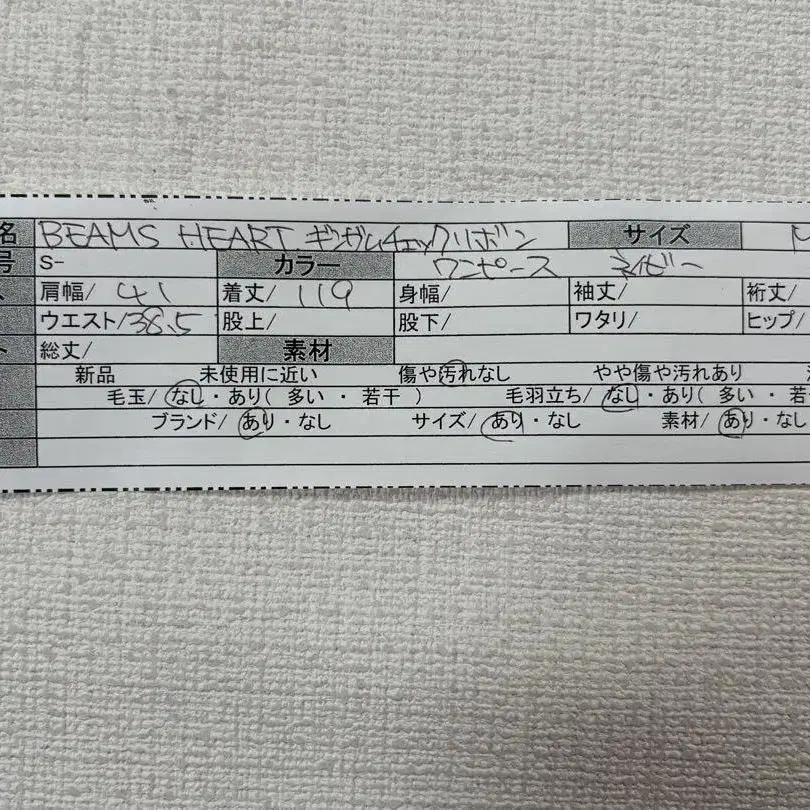 名 BEAMS HEART ギンガムチェックリボン サイズ M
号 S- カラー ワンピース ネイビー
肩幅/ 41 着丈/ 119 身幅/ 袖丈/ 裄丈/
ウエスト/38.5 股上/ 股下/ ワタリ/ ヒップ/
ト 総丈/ 素材
新品 未使用に近い 傷や汚れなし やや傷や汚れあり
毛玉/ なし・あり( 多い ・ 若干 ) 毛羽立ち/ なし・あり( 多い ・ 若
ブランド/ あり・なし サイズ/ あり・なし 素材/ あり・なし